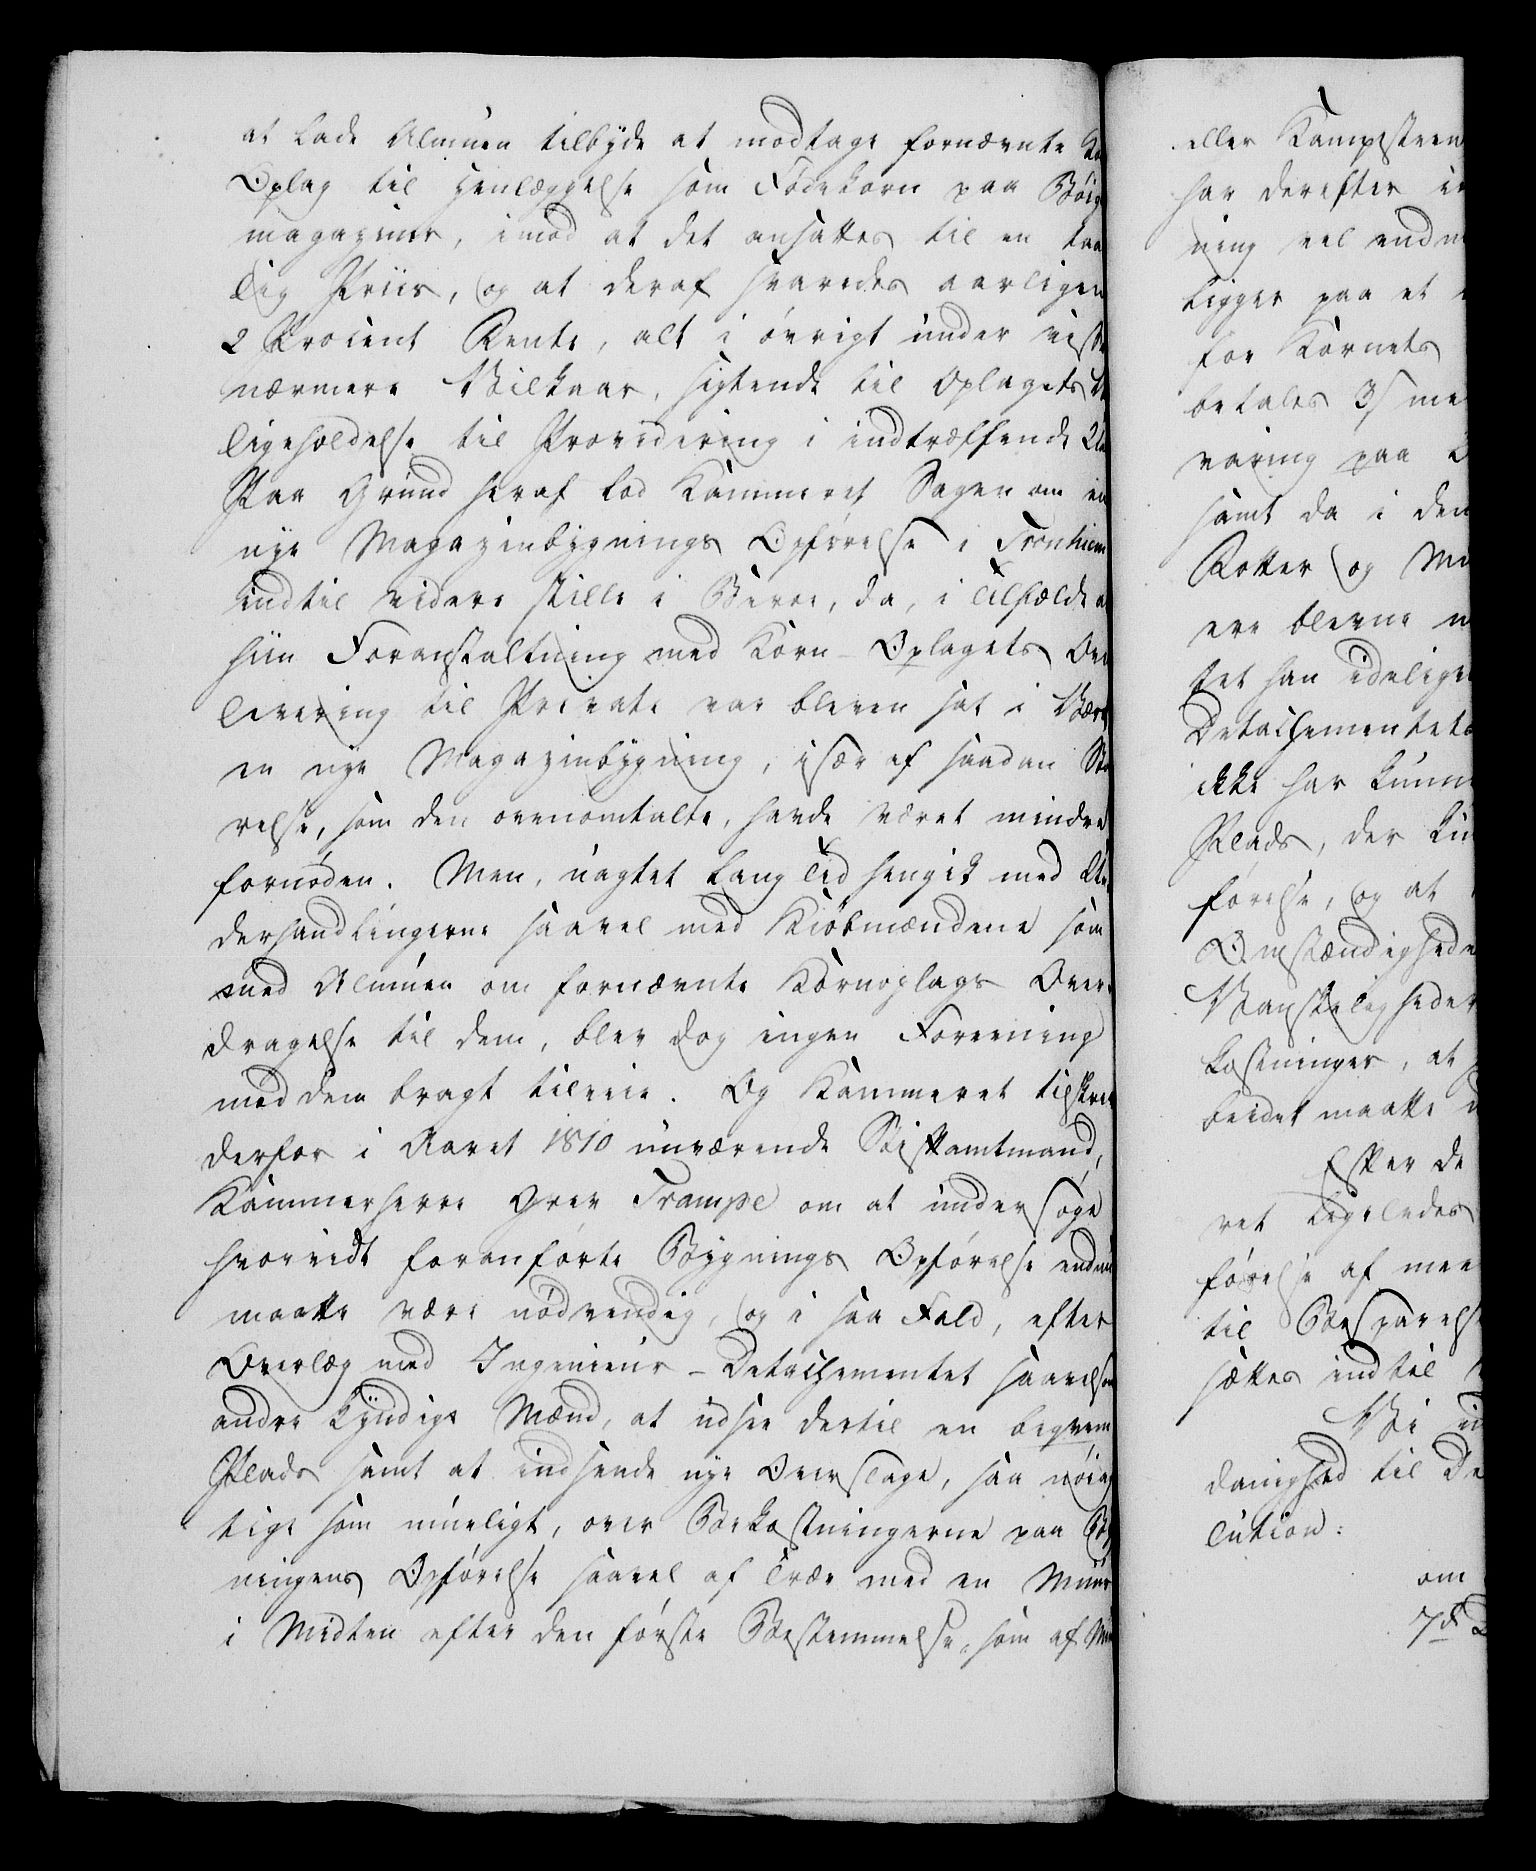 at lade Almuen tilbyde at modtage fornævnte
Oplag til Henlæggelse som Fødekorn paa Bøig
magaziner, imod at det ansattes til en taa
lig Priis, og at deraf svaredes aarligen
2 Procent Rente, alt i øvrigt under visse
nærmere Vilkaar, sigtende til Oplagets
ligeholdelse til Providering i indtræffende
Paa Grund heraf lod Kammeret Sagen om en
nye Magazinbygnings Opførelse i Tronhiem
indtil videre stille i Beroe, da, i Tilfælde a
hiin Foranstaltning med Korn-Oplagets Over
levering til Private var bleven sat i Værk
en nye Magazinbygning, især af saadan Stø
relse, som den ovenomtalte, havde været mindre
fornøden. Men, uagtet lang Tid hengik med Un
derhandlingerne saavel med Kiøbmændene som
med Almuen om fornævnte Kornoplags Over
dragelse til dem, blev dog ingen Foreening
med dem bragt tilveie. Og Kammeret tilskrev
derfor i Aaret 1810 nuværende Stiftamtmand,
Kammerherre Grev Trampe om at undersøge
hvorvidt foranførte Bygnings Opførelse endnu
maatte være nødvendig, og i saa Fald, efter
Overlæg med Ingenieur-Detachementet saavelsom
andre kyndige Mænd, at udsee dertil en beqvem
Plads samt at indsende nye Overslage, saa nøiag
tige som mueligt, over Bekostningerne paa Byg
ningens Opførelse saavel af Træe med en Muur
i Midten efter den første Bestemmelse, som af Mu
eller Kampesteen
har derefter in
ning vel endn
ligger paa et
for Kornets
betales 3/ me
varing paa
samt da i den
Rotter og Mu
ere blevne
tet han ideligen
Detachementets
ikke har kunne
Plads, der ku
førelse, og at
Omstændighede
Vanskeligheder
kostninger, at
beidet maatte
Efter de
ret ligeledes
førelse af mee
til Besparelse
sættes indtil
Vi in
danighed til De
lution:
om
7d D